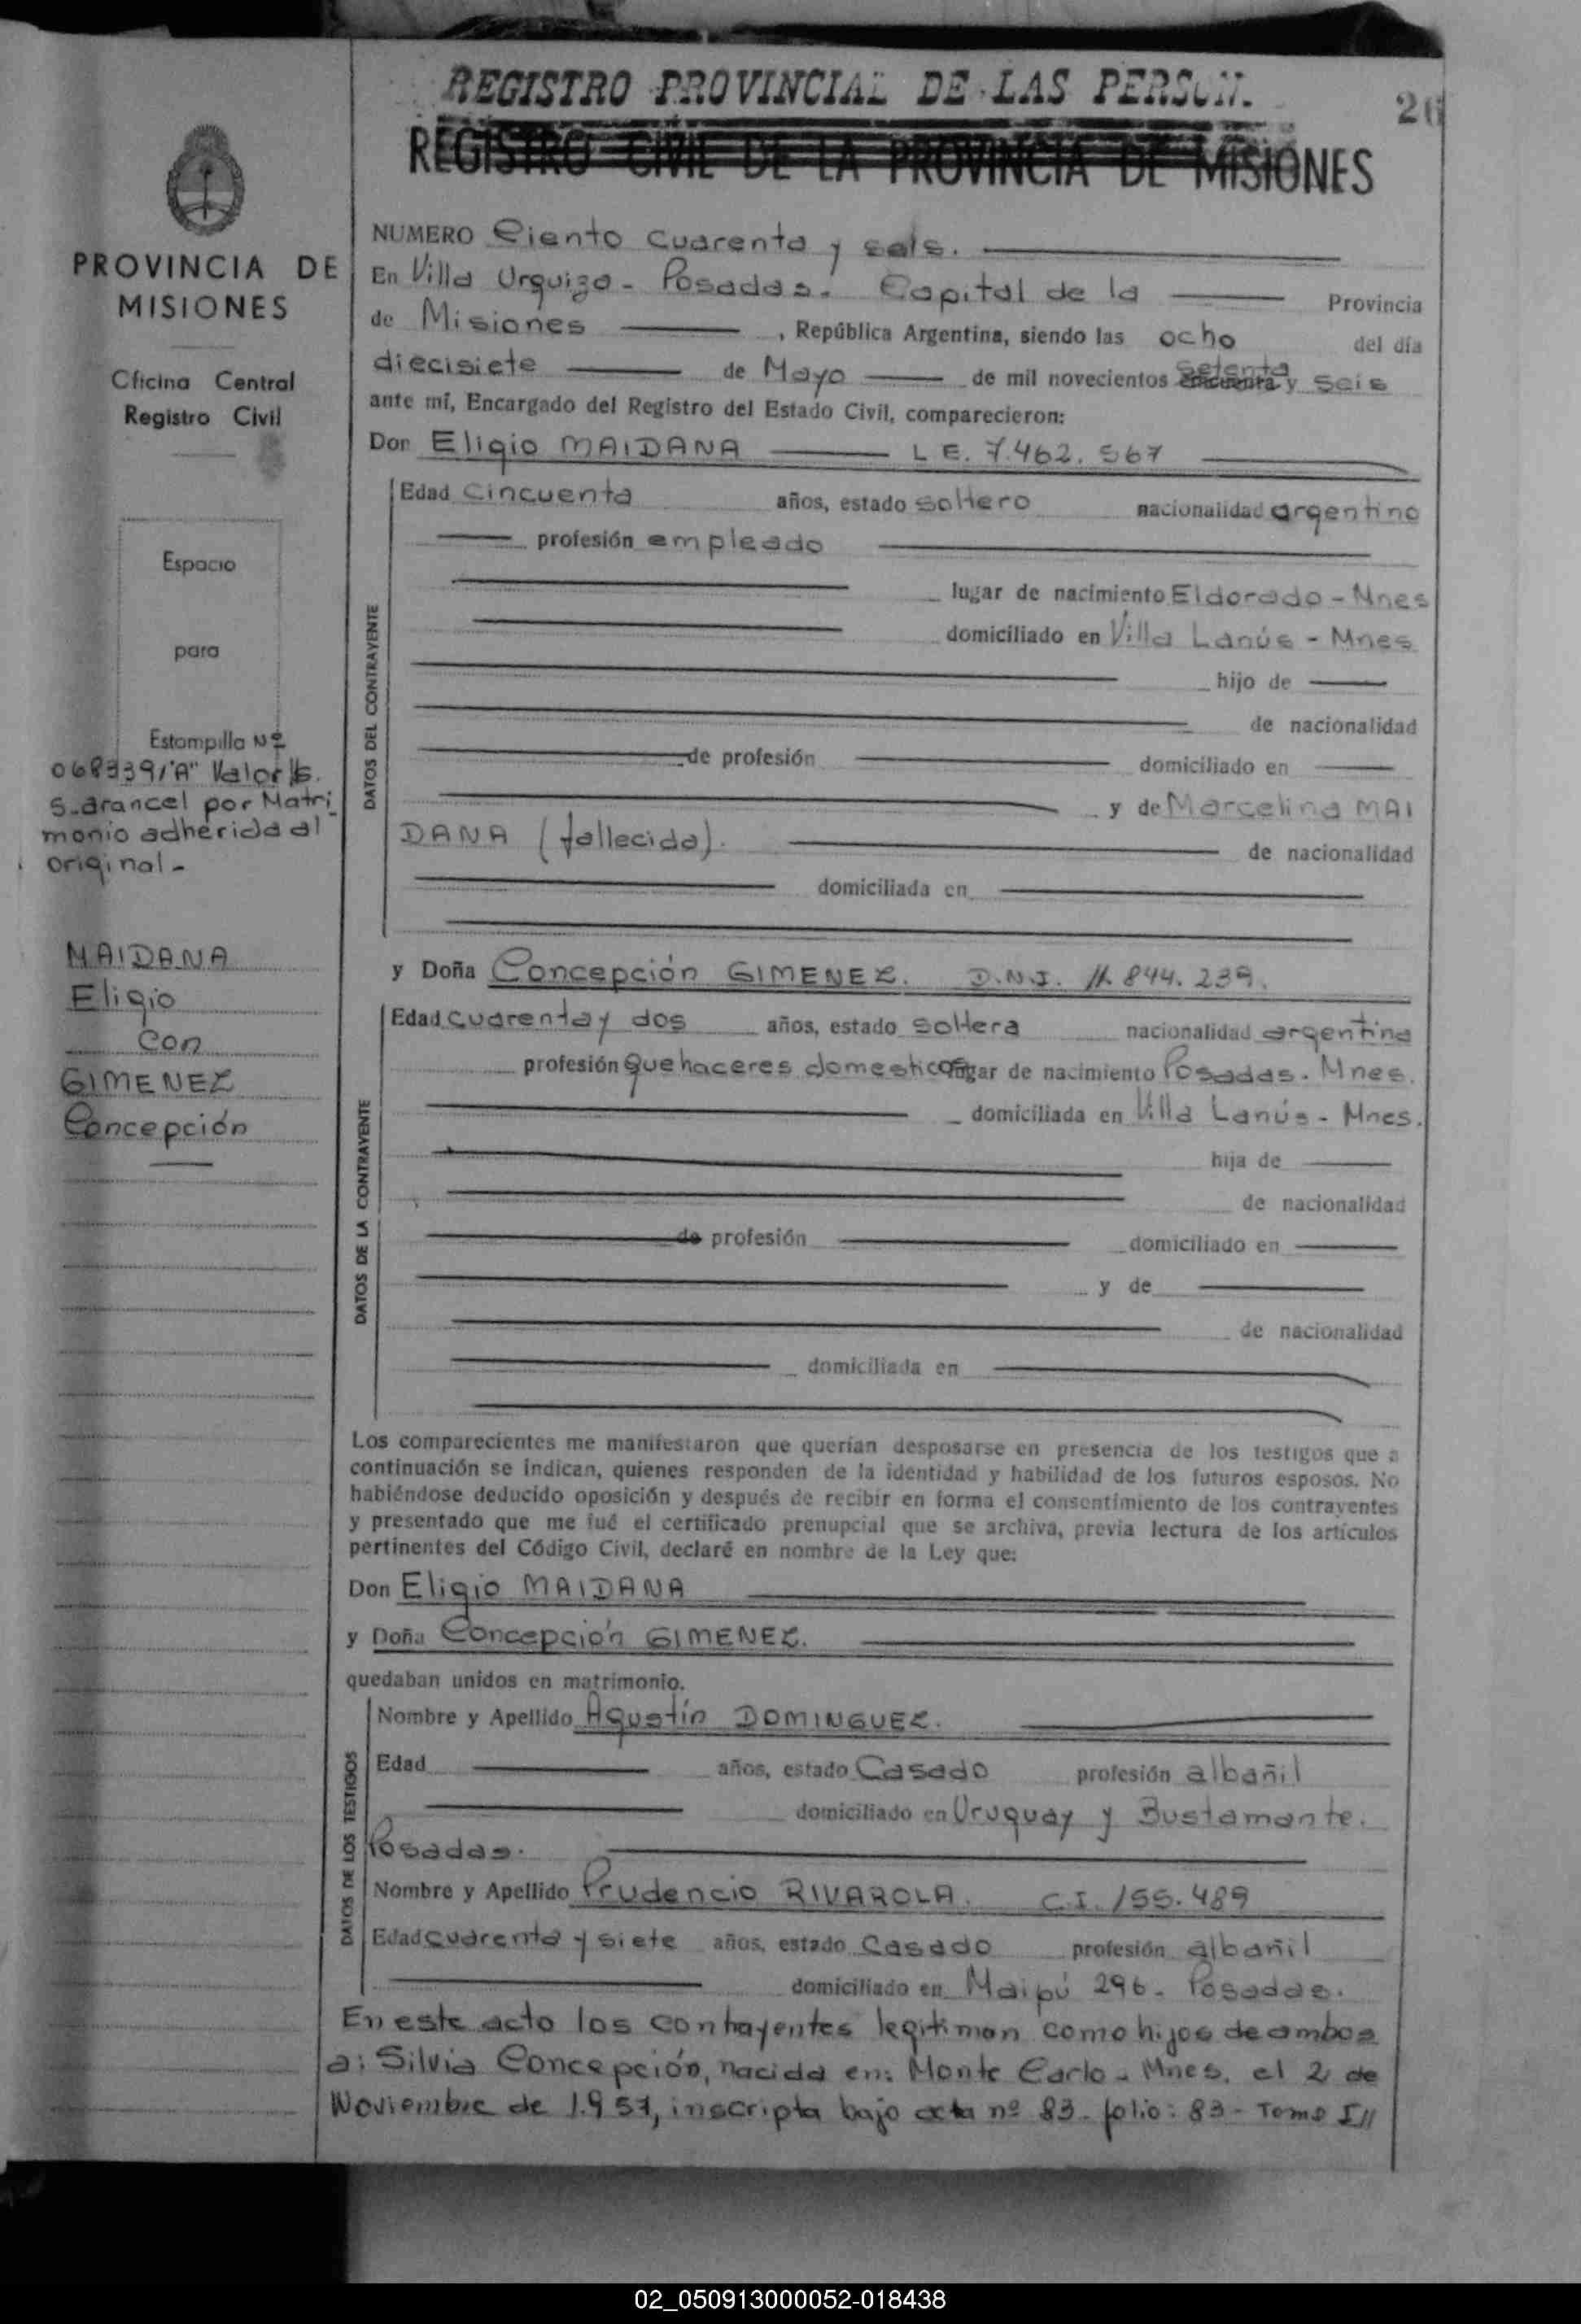 REGISTRO PROVINCIAL DE LAS PERSON.
26
REGISTRO CIVIL DE LA PROVINCIA DE MISIONES
PROVINCIA DE
MISIONES
Oficina Central
Registro Civil
Espacio
para
Estampilla Nº
068339/"A" Valor $
5.- arancel por Matri
monio adherida al
original-
MAIDANA
Eligio
con
GIMENEZ
Concepción
NUMERO Ciento cuarenta y seis.
En Villa Urquiza - Posadas. Capital de la Provincia
de Misiones , República Argentina, siendo las ocho del día
diecisiete de Mayo de mil novecientos setenta y seis
ante mí, Encargado del Registro del Estado Civil, comparecieron:
Don Eligio MAIDANA L E. 7.462.567
DATOS DEL CONTRAYENTE
Edad cincuenta años, estado soltero nacionalidad argentino
profesión empleado
lugar de nacimiento Eldorado - Mnes
domiciliado en Villa Lanús - Mnes
hijo de
de nacionalidad
de profesión domiciliado en
y de Marcelina MAI
DANA (fallecida). de nacionalidad
domiciliada en
y Doña Concepción GIMENEZ. D.N.I. 11.844.239.
DATOS DE LA CONTRAYENTE
Edad cuarenta y dos años, estado soltera nacionalidad argentina
profesión quehaceres domesticos lugar de nacimiento Posadas. Mnes.
domiciliada en Villa Lanús - Mnes.
hija de
de nacionalidad
de profesión domiciliado en
y de
de nacionalidad
domiciliada en
Los comparecientes me manifestaron que querían desposarse en presencia de los testigos que a
continuación se indican, quienes responden de la identidad y habilidad de los futuros esposos. No
habiéndose deducido oposición y después de recibir en forma el consentimiento de los contrayentes
y presentado que me fué el certificado prenupcial que se archiva, previa lectura de los artículos
pertinentes del Código Civil, declaré en nombre de la Ley que:
Don Eligio MAIDANA
y Doña Concepción GIMENEZ.
quedaban unidos en matrimonio.
DATOS DE LOS TESTIGOS
Nombre y Apellido Agustín DOMINGUEZ.
Edad años, estado Casado profesión albañil
domiciliado en Uruguay y Bustamante.
Posadas.
Nombre y Apellido Prudencio RIVAROLA. C.I. 155.489
Edad cuarenta y siete años, estado Casado profesión albañil
domiciliado en Maipú 296. Posadas.
En este acto los contrayentes legitiman como hijos de ambos
a: Silvia Concepción, nacida en: Monte Carlo - Mnes. el 2 de
Noviembre de 1.957, inscripta bajo acta nº 83. folio: 83 - Tomo III
02_050913000052-018438